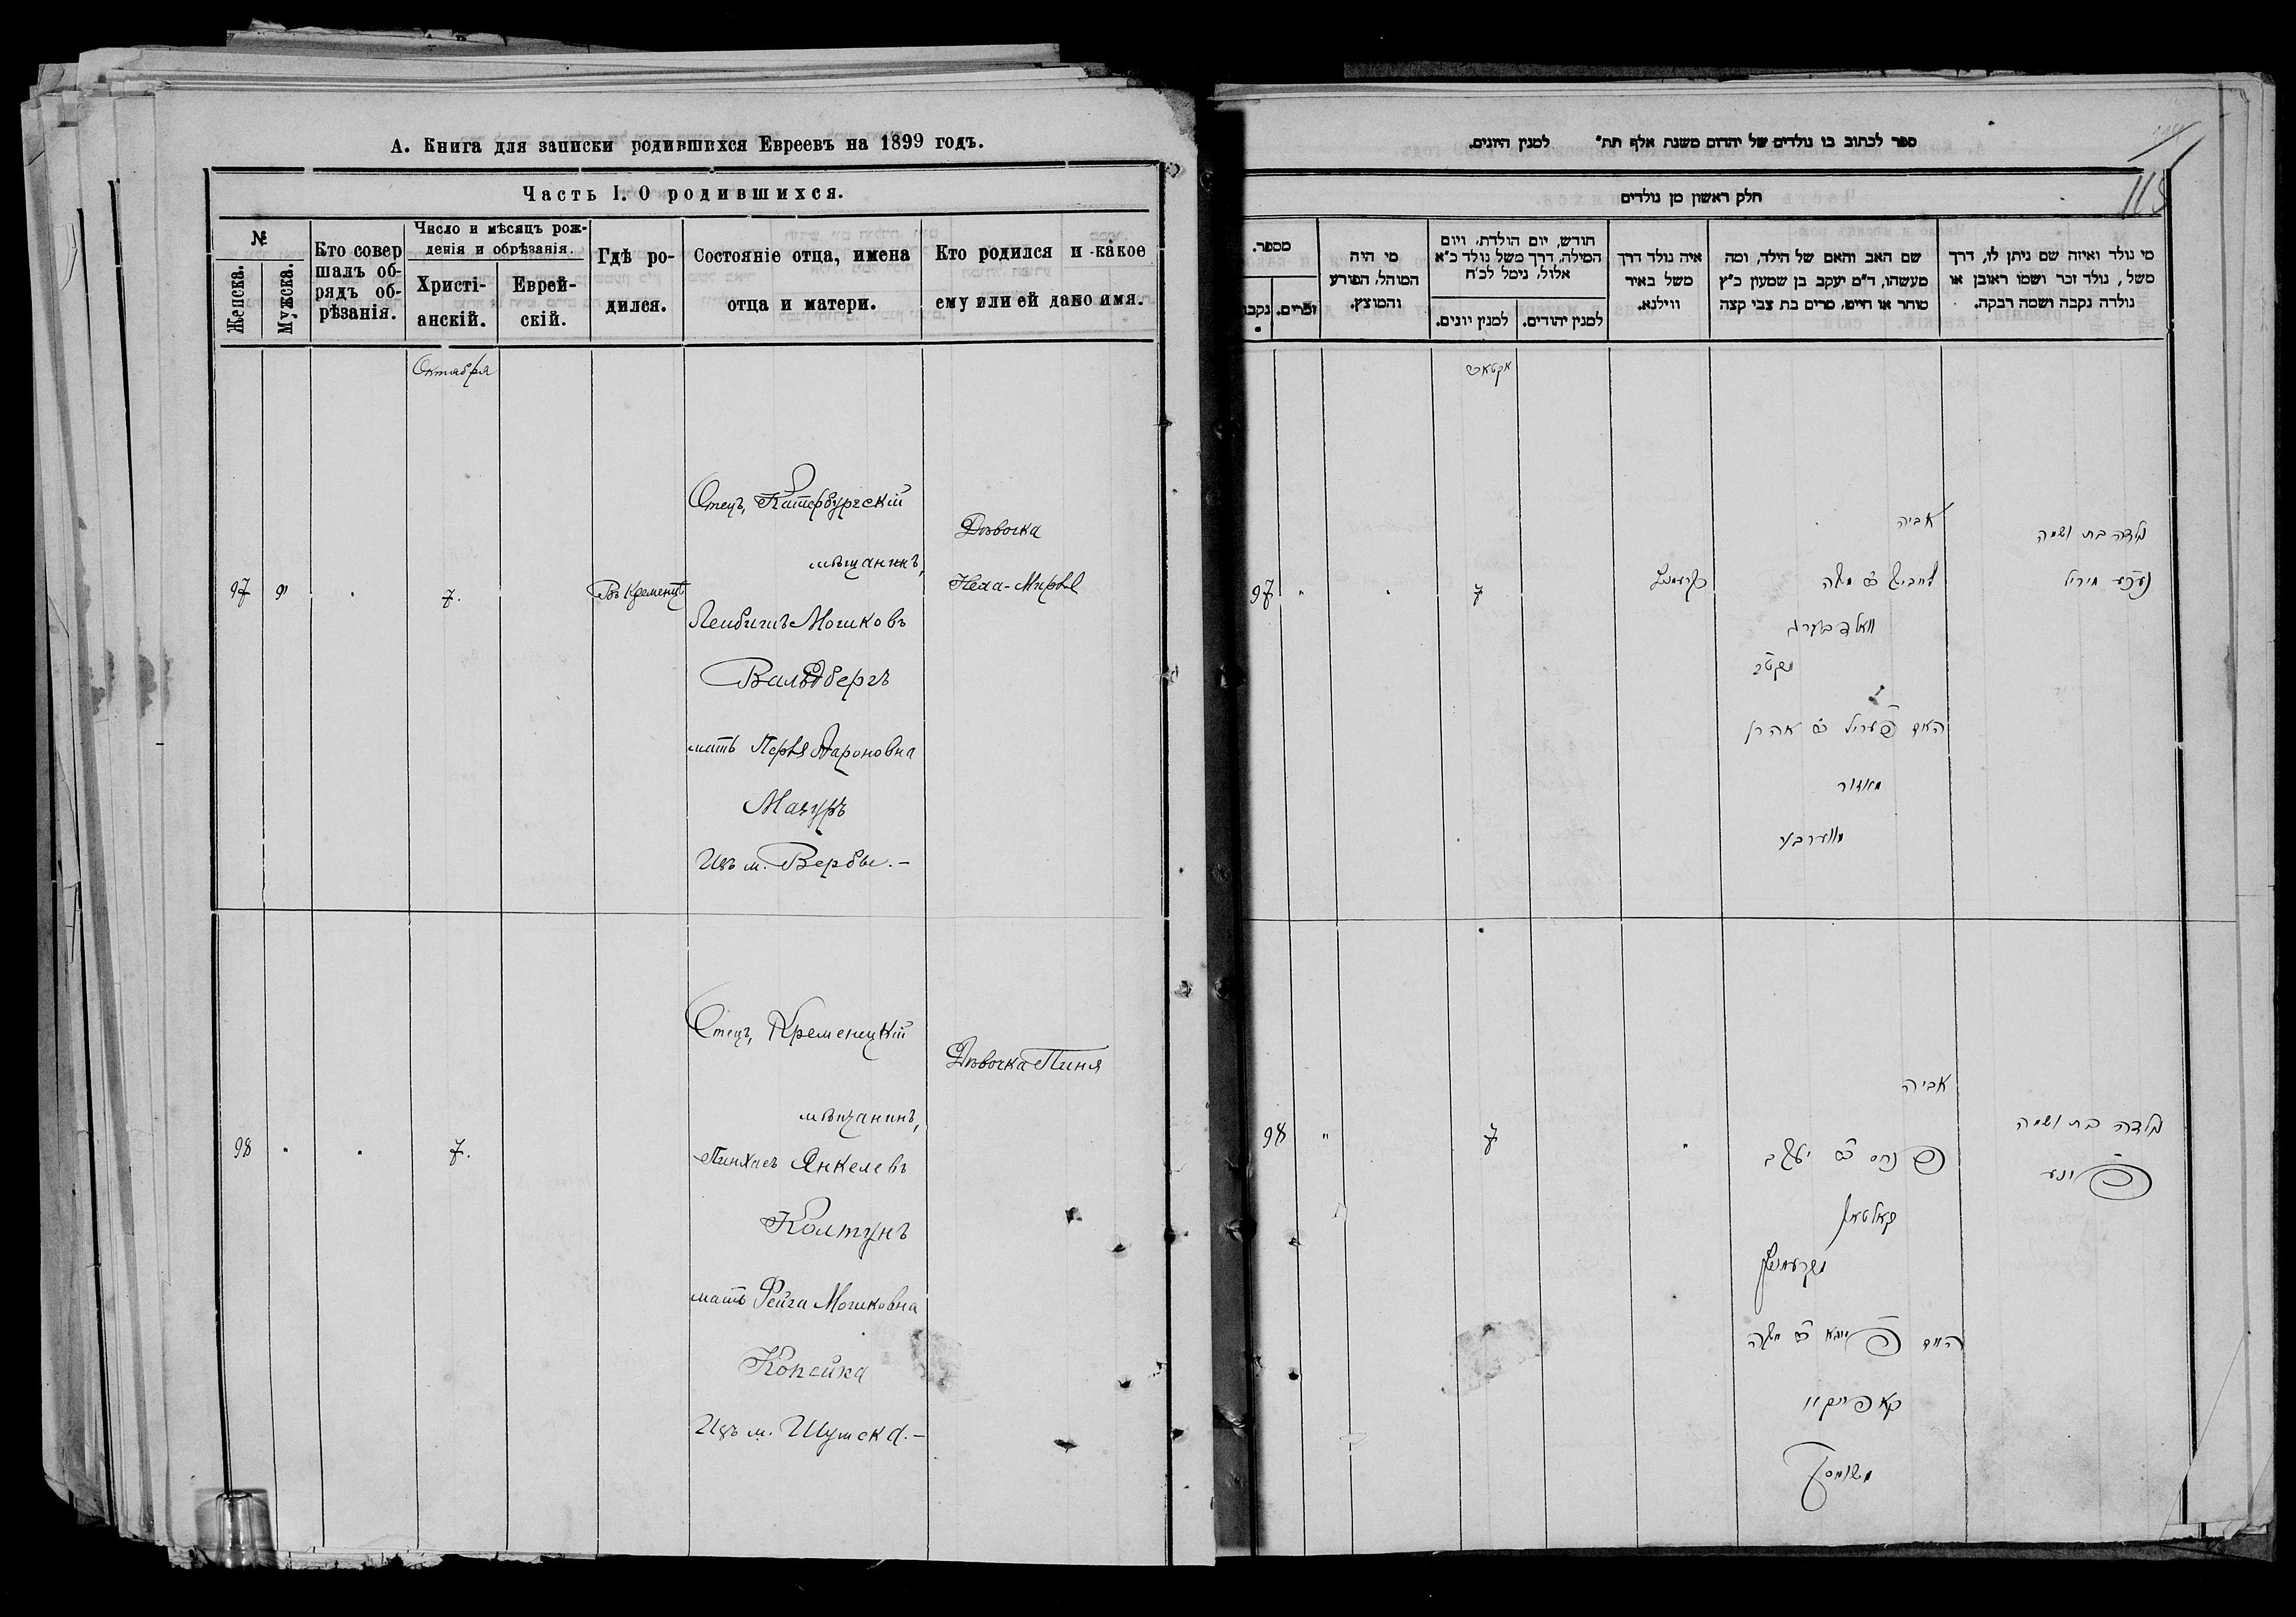 А. Книга для записки родившихся Евреевъ на 1899 годъ.
Часть I. О родившихся.
№
Женска.
Мужска.
Кто совер
шалъ об-
рядъ об-
рѣзанія.
Число и мѣсяцъ рож-
денія и обрѣзанія.
Христі-
анскій.
Еврей-
скій.
Гдѣ ро-
дился.
Состояніе отца, имена
отца и матери.
Кто родился и какое
ему или ей дано имя.
Октября
97
7.
Въ Кременцѣ
Отецъ, Катербургскій
мѣщанинъ,
Лейбишъ Мошковъ
Вальдбергъ
мать Перля Ароновна
Мазуръ
Изъ м. Вербы.-
Дѣвочка
Неха-Мирля
98
7.
Отецъ, Кременецкій
мѣщанинъ,
Пинхасъ Янкелевъ
Колтунъ
мать Фейга Мошковна
Копейка
Изъ м. Шумска.-
Дѣвочка Пиня
ספר לכתוב בו נולדים של יהדום משנת אלף תת" למנין היונים.
115
חלק ראשון מן נולדים
מי נולד ואיזה שם ניתן לו, דרך
משל, נולד זכר ושמו ראובן או
נולדה נקבה ושמה רבקה.
שם האב והאם של הילד, ומה
מעשהו, ד"מ יעקב בן שמעון כ"ץ
סוחר או חייט, מרים בת צבי קצה
איה נולד דרך
משל באיר
ווילנא.
חודש, יום הולדת, ויום
המילה, דרך משל נולד כ"א
אלול, נימל לכ"ח
למנין יהודים.
למנין יונים.
מי היה
המוהל, הפורע
והמוצץ.
מספר.
זכרים.
נקבו
נולדה בת ושמה
נעכע מיריל
אביה
לייביש בם משה
וואלדבערג
האם פעריל בם אהרן
מאזור
מווערבע
קרעמניץ
7
97
נולדה בת ושמה
פינע
אביה
פנחס בם יעקב
קאלטאן
מקרעמניץ
האם פייגא בם משה
משומסק
7
98